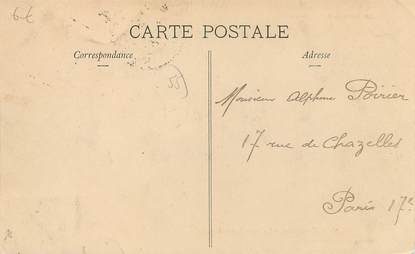 6€
CARTE POSTALE
Correspondance
Adresse
55
Monsieur Alphonse Poirier
17 rue de Chazelles
Paris 17e